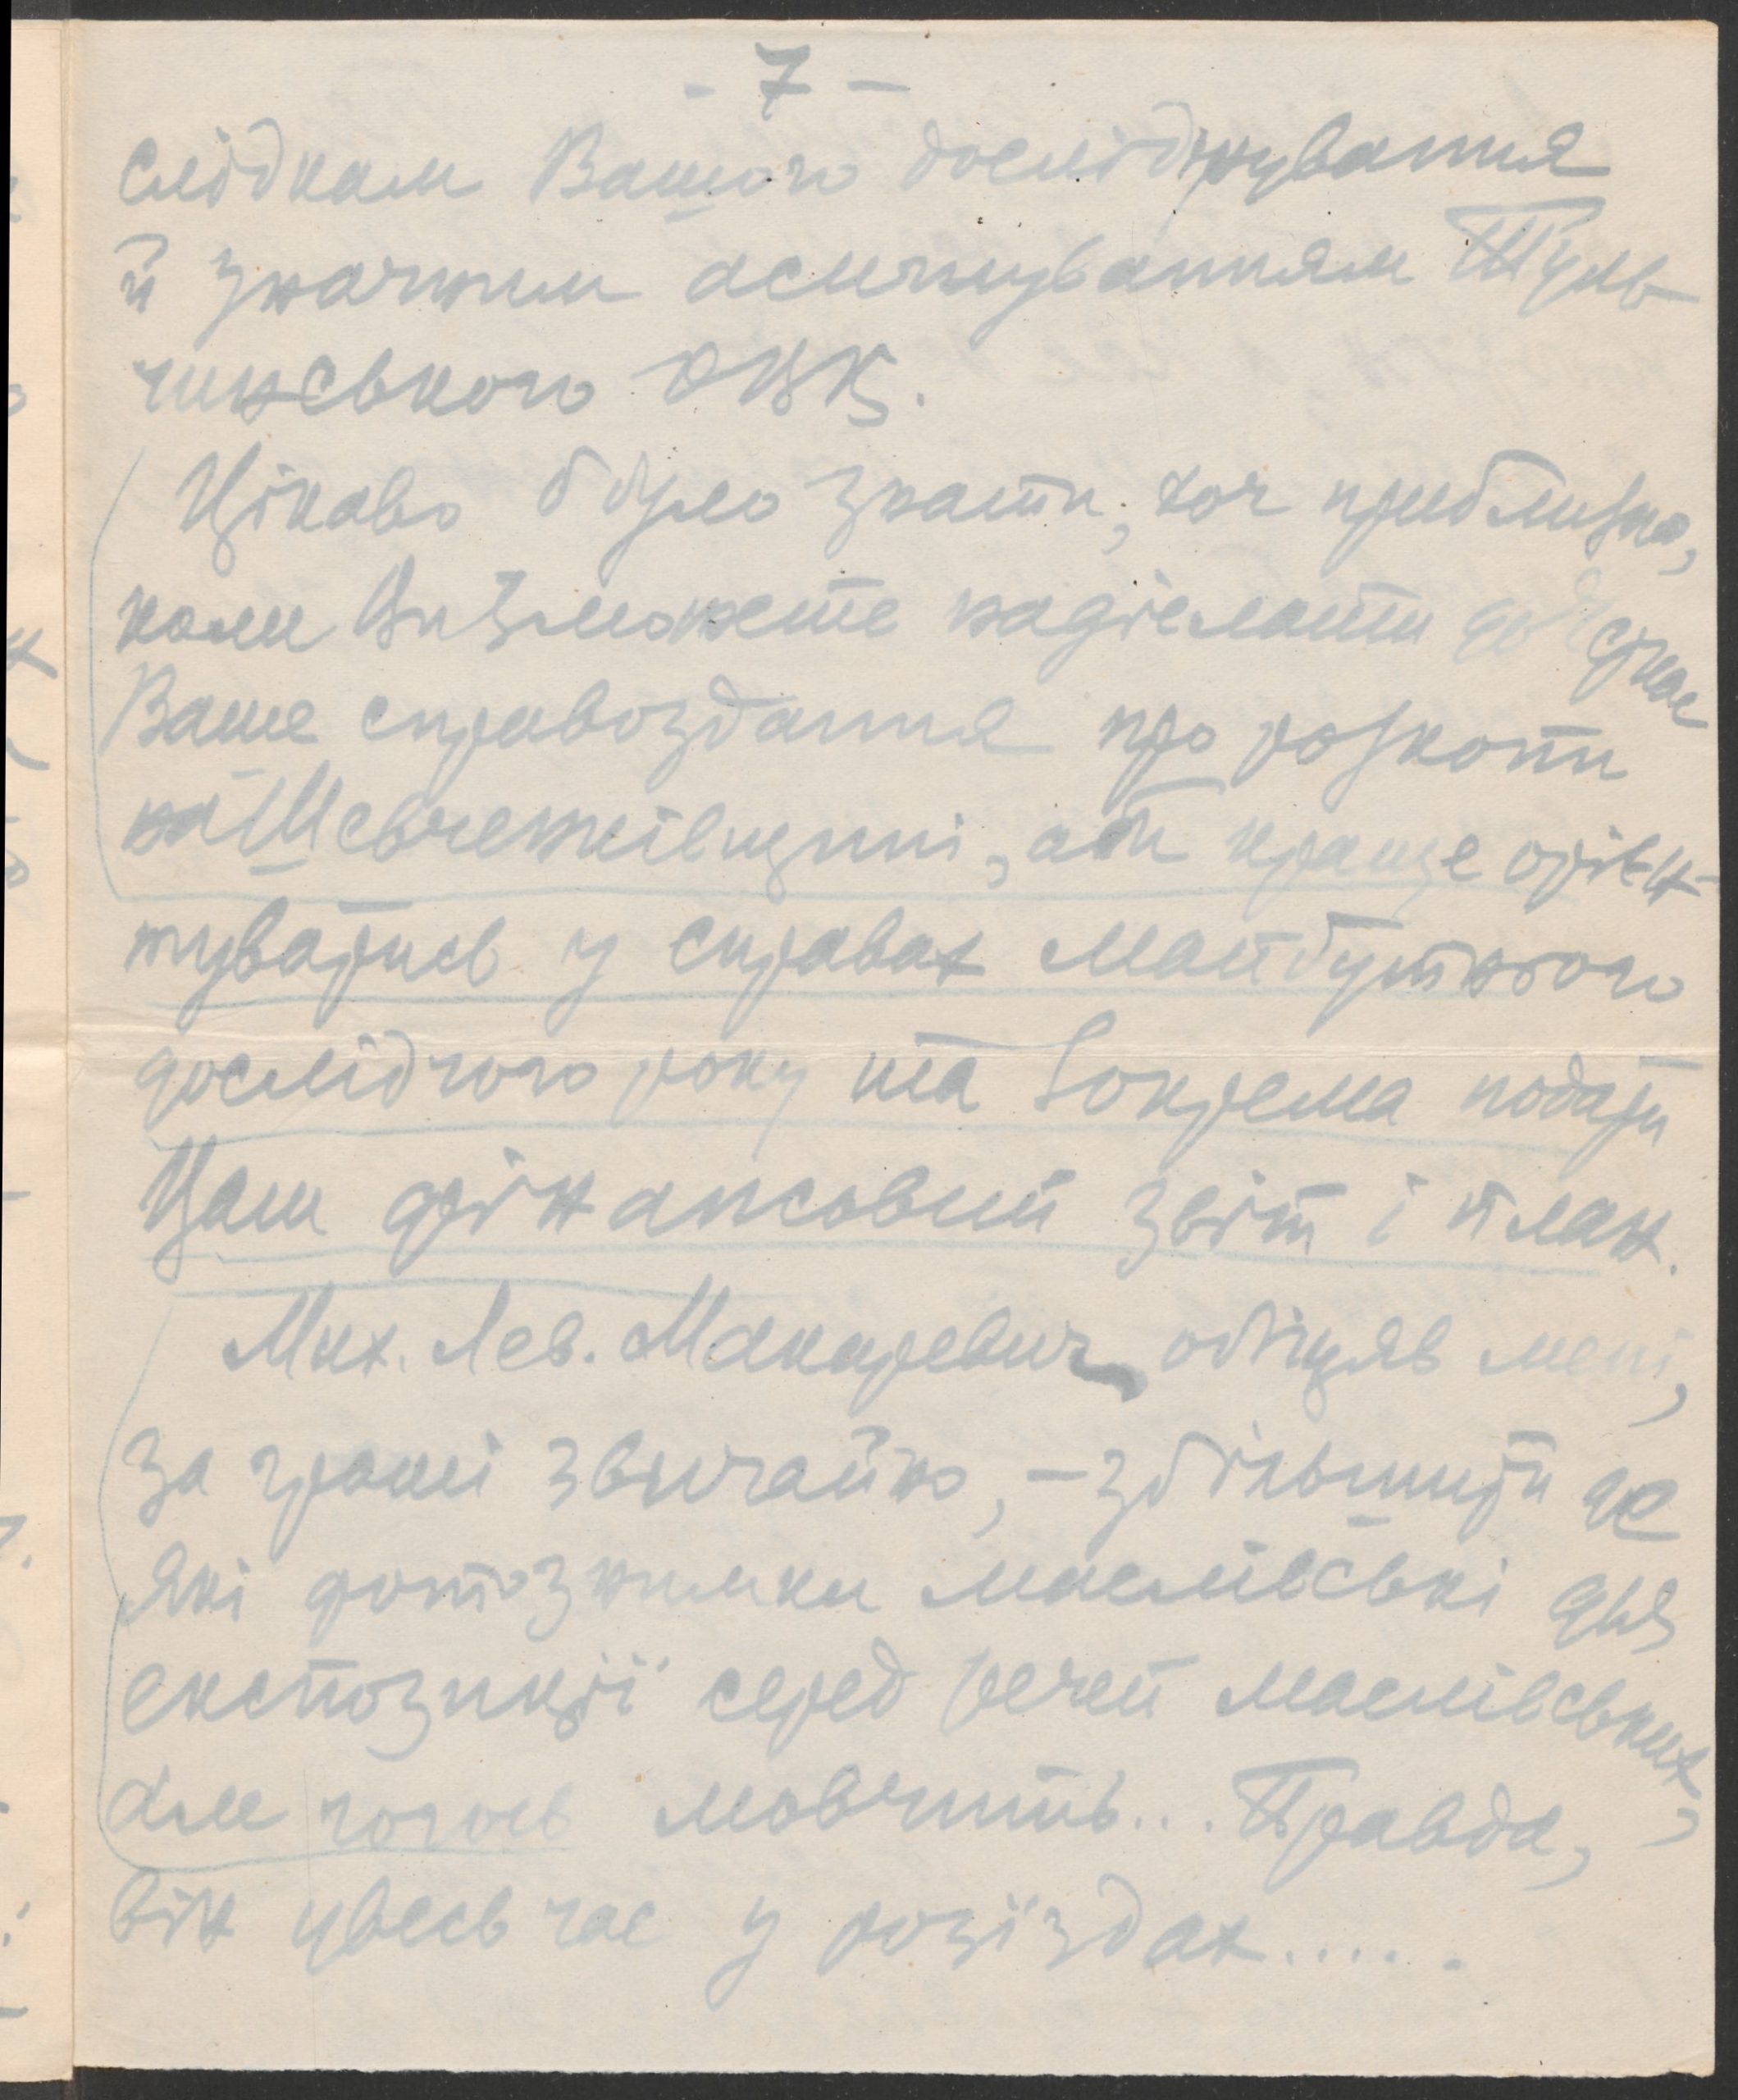 - 7 -
слідкам Вашого досліджування
й значним асигнуванням Туль-
чинського ОВК.
Цікаво було знати, хоч приблизно,
коли Ви зможете надіслати до
Ваше справоздання про розкопи
на Шевченківщині, аби краще орієн-
туватись у справах майбутнього
дослідчого року та зокрема подати
Ваш фінансовий звіт і план.
Мих. Лев. Макаревич обіцяв мені,
за гроші звичайно, – збільшити де
які фотознимки маслівські для
експозиції серед речей маслівських,
але чогось мовчить... Правда,
він увесь час у розїздах.....